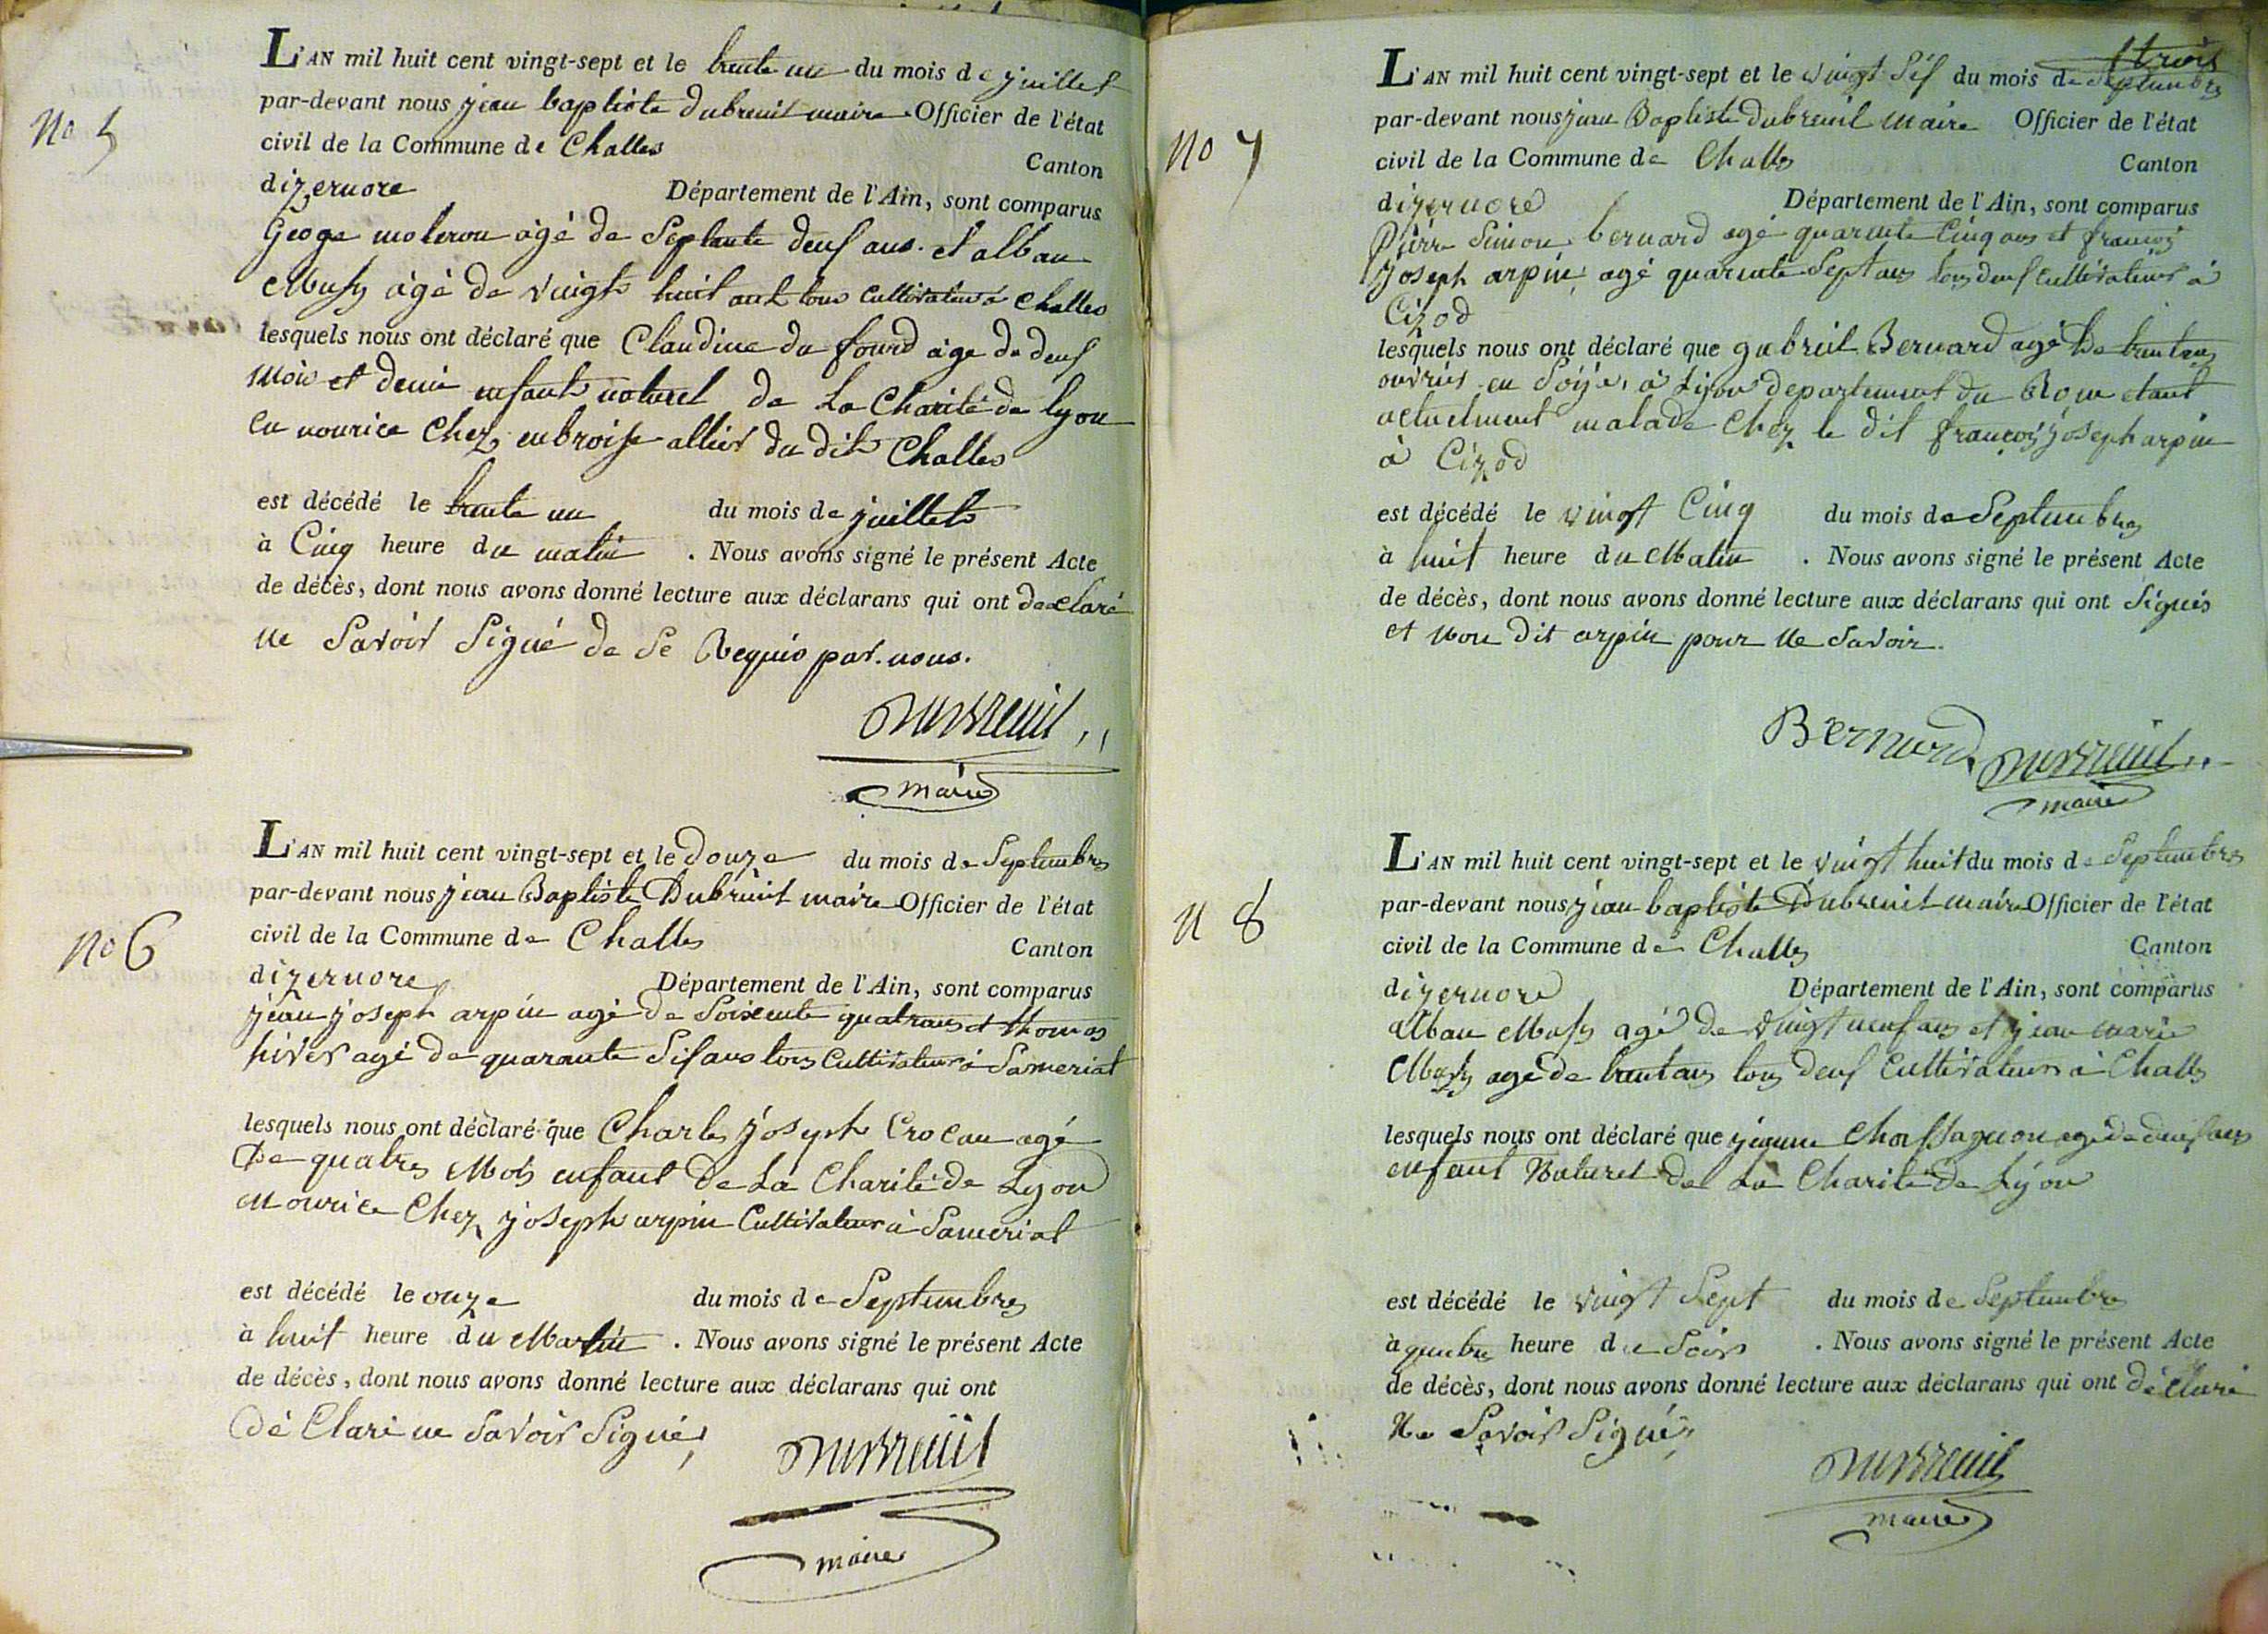 No 5
L'AN mil huit cent vingt-sept et le trente un du mois de juillet
par-devant nous jean baptiste dubreuil maire Officier de l'état
civil de la Commune de Challes
Canton
dizernore Département de l'Ain, sont comparus
Geoge moleron âgé de Septente deuf ans. et alban
Mufy âgé de vingts huit ans tous Cultivateur à Challes
lesquels nous ont déclaré que Claudine du fourd âge de deuf
Mois et demi enfants naturel de La Charité de lyon
en nourice Chez enbroise allier du dits Challes
est décédé le trente un du mois de juillets
à Cinq heure du matin . Nous avons signé le présent Acte
de décès, dont nous avons donné lecture aux déclarans qui ont declaré
ne Savoir Signé de Se Requis par nous.
Dubreuil
maire
No 6
L'AN mil huit cent vingt-sept et le douze du mois de Septembres
par-devant nous jean Baptiste Dubreuil maire Officier de l'état
civil de la Commune de Challes
Canton
dizernore Département de l'Ain, sont comparus
jean joseph arpin agé de Soixente quatrans et thomas
hiver agé de quarante Sif ans tous Cultivateur à Sameriat
lesquels nous ont déclaré que Charles joseph Crocau agé
De quatres Mois enfant de La Charité de Lyon
en ourice Chez joseph arpin Cultivateur à Sameriat
est décédé le onze du mois de Septembres
à huit heure du Matin . Nous avons signé le présent Acte
de décès, dont nous avons donné lecture aux déclarans qui ont
dé Claré ne Savoir Signé,
Dubreuil
maire
No 7
L'AN mil huit cent vingt-sept et le vingt Sif du mois de Septembres
par-devant nous jean Baptiste dubreuil Maire Officier de l'état
civil de la Commune de Challes
Canton
dizernore Département de l'Ain, sont comparus
Pierre Simon bernard agé quarente Cinq ans et françois
joseph arpin agé quarente Sept ans tous deuf cultivateur à
Cizod
lesquels nous ont déclaré que gabriel Bernard agé De trentans
ouvries en Soÿe, à Lÿon departement du Rone etant
actuelment malade Chez le dit françois joseph arpin
à Cizod
est décédé le vingt Cinq du mois de Septembres
à huit heure du Matin . Nous avons signé le présent Acte
de décès, dont nous avons donné lecture aux déclarans qui ont Signés
et Non dit arpin pour Ne Savoir.
Bernard Dubreuil
maire
N 8
L'AN mil huit cent vingt-sept et le vingt huit du mois de Septembres
par-devant nous jean baptiste Dubreuil maire Officier de l'état
civil de la Commune de Challes
Canton
dizernore Département de l'Ain, sont comparus
alban Mufy agé de vingt neuf ans et jean marie
Mufy agé de trentans tous deuf Cultivateur à Challes
lesquels nous ont déclaré que jeanne Chassagnon agé de deuf ans
enfant Naturel de La Charité de Lÿon
est décédé le vingt Sept du mois de Septembre
à heure du Soir . Nous avons signé le présent Acte
de décès, dont nous avons donné lecture aux déclarans qui ont déClaré
Ne Savoir Signés
Dubreuil
maire